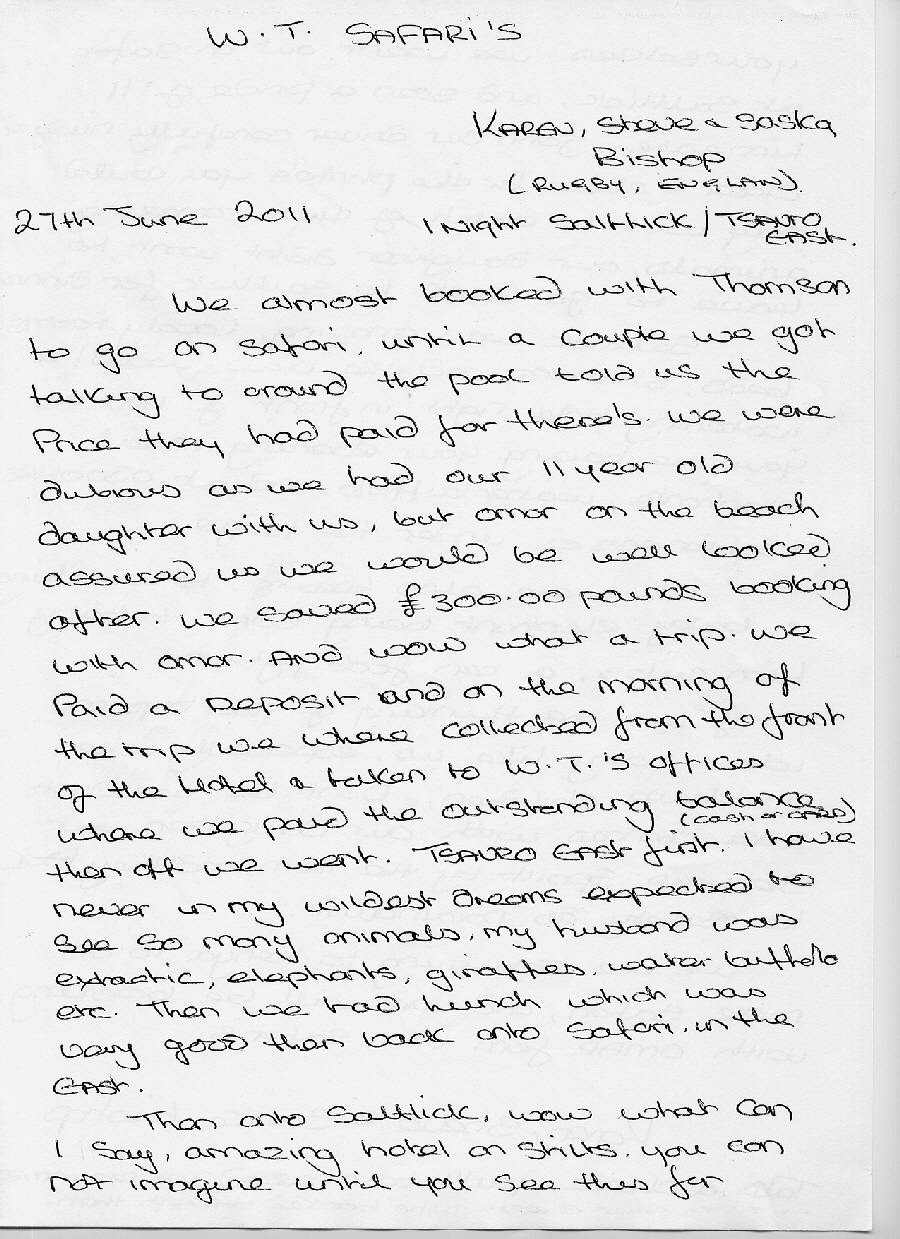 W.T. SAFARI'S
KAREN, Steve & Saska
Bishop
(RUGBY, ENGLAN).
27th June 2011
1 Night Saltlick / TSAVRO
EAST.
We almost booked with Thomson
to go on safari, until a couple we got
talking to around the pool told us the
Price they had paid for there's. we were
dubious as we had our 11 year old
daughter with us, but omar on the beach
assured us we would be well looked
after. we saved £300.00 pounds booking
with omar. And wow what a trip. we
Paid a Deposit and on the morning of
the trip we where collected from the front
of the Hotel & taken to W.T.'s offices
where we paid the outstanding balance
(cash or card)
then off we went. TSAVRO EAST first. I have
never in my wildest dreams expected to
see so many animals, my husband was
extactic, elephants, giraffes, water buffelo
etc. Then we had lunch which was
very good then back onto Safari, in the
East.
Then onto Saltlick, wow what can
I say, amazing hotel on stilts. you can
not imagine until you see this for